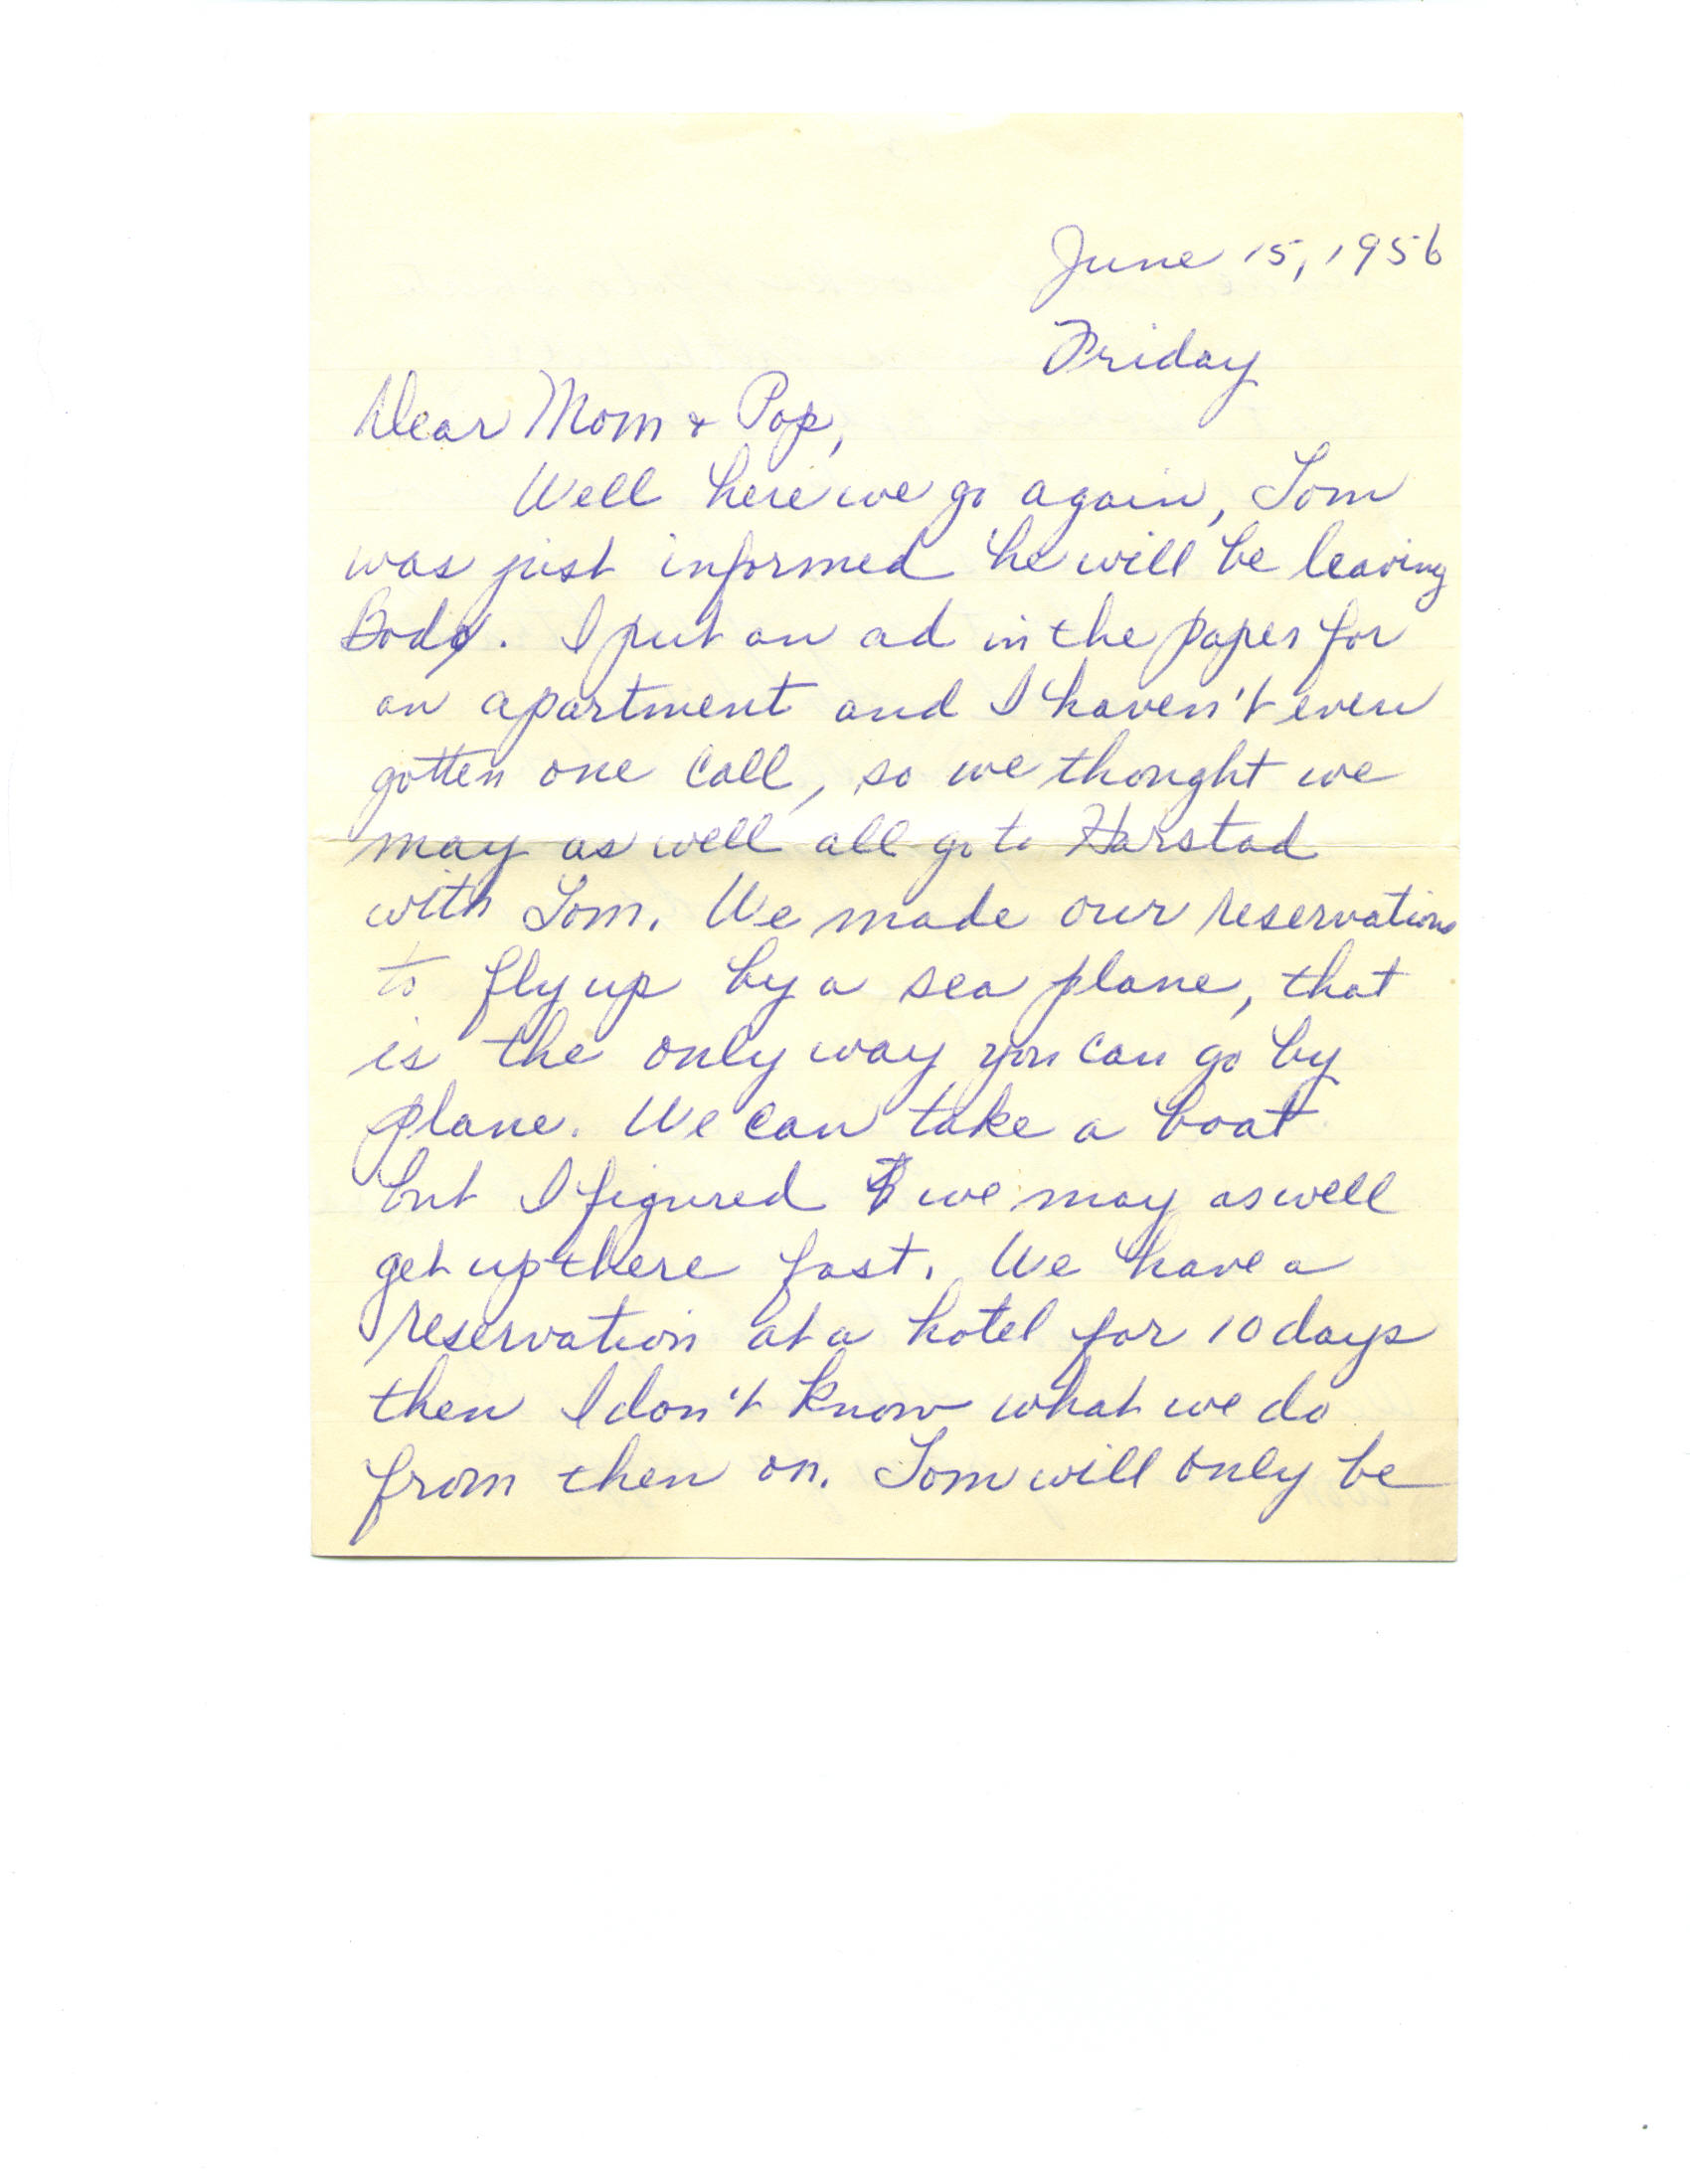 June 15, 1956
Friday
Dear Mom & Pop,
Well here we go again, Tom
was just informed he will be leaving
Bodø. I put an ad in the paper for
an apartment and I haven't even
gotten one call, so we thought we
may as well all go to Harstad
with Tom. We made our reservations
to fly up by a sea plane, that
is the only way you can go by
plane. We can take a boat
but I figured we may as well
get up there fast. We have a
reservation at a hotel for 10 days
then I don't know what we do
from then on. Tom will only be